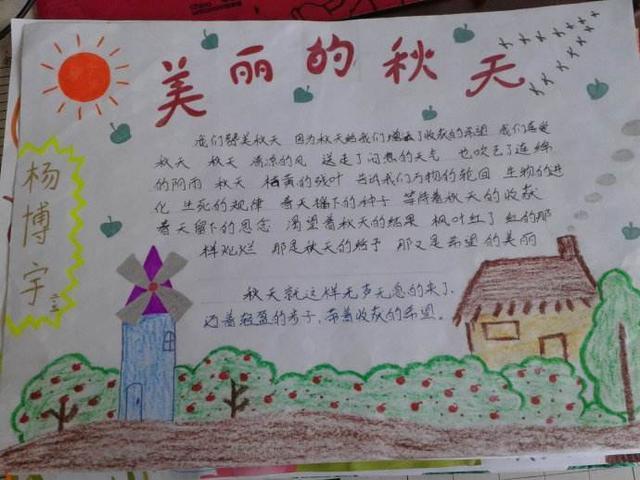 美丽的秋天
杨博宇
我们赞美秋天 因为秋天给我们增添了收获的希望 我们喜爱
秋天 秋天 清凉的风 送走了闷热的天气 也吹皂了连绵
的阴雨 秋天 橘黄的残叶 告诉我们万物的轮回 生物的进
化 生死的规律 春天播下的种子 等待着秋天的收获
春天留下的思念 渴望着秋天的结果 枫叶红了 红的那
样灿烂 那是秋天的给予 那又是希望的美丽
秋天就这样无声无息的来了,
迈着轻盈的步子,带着收获的希望。